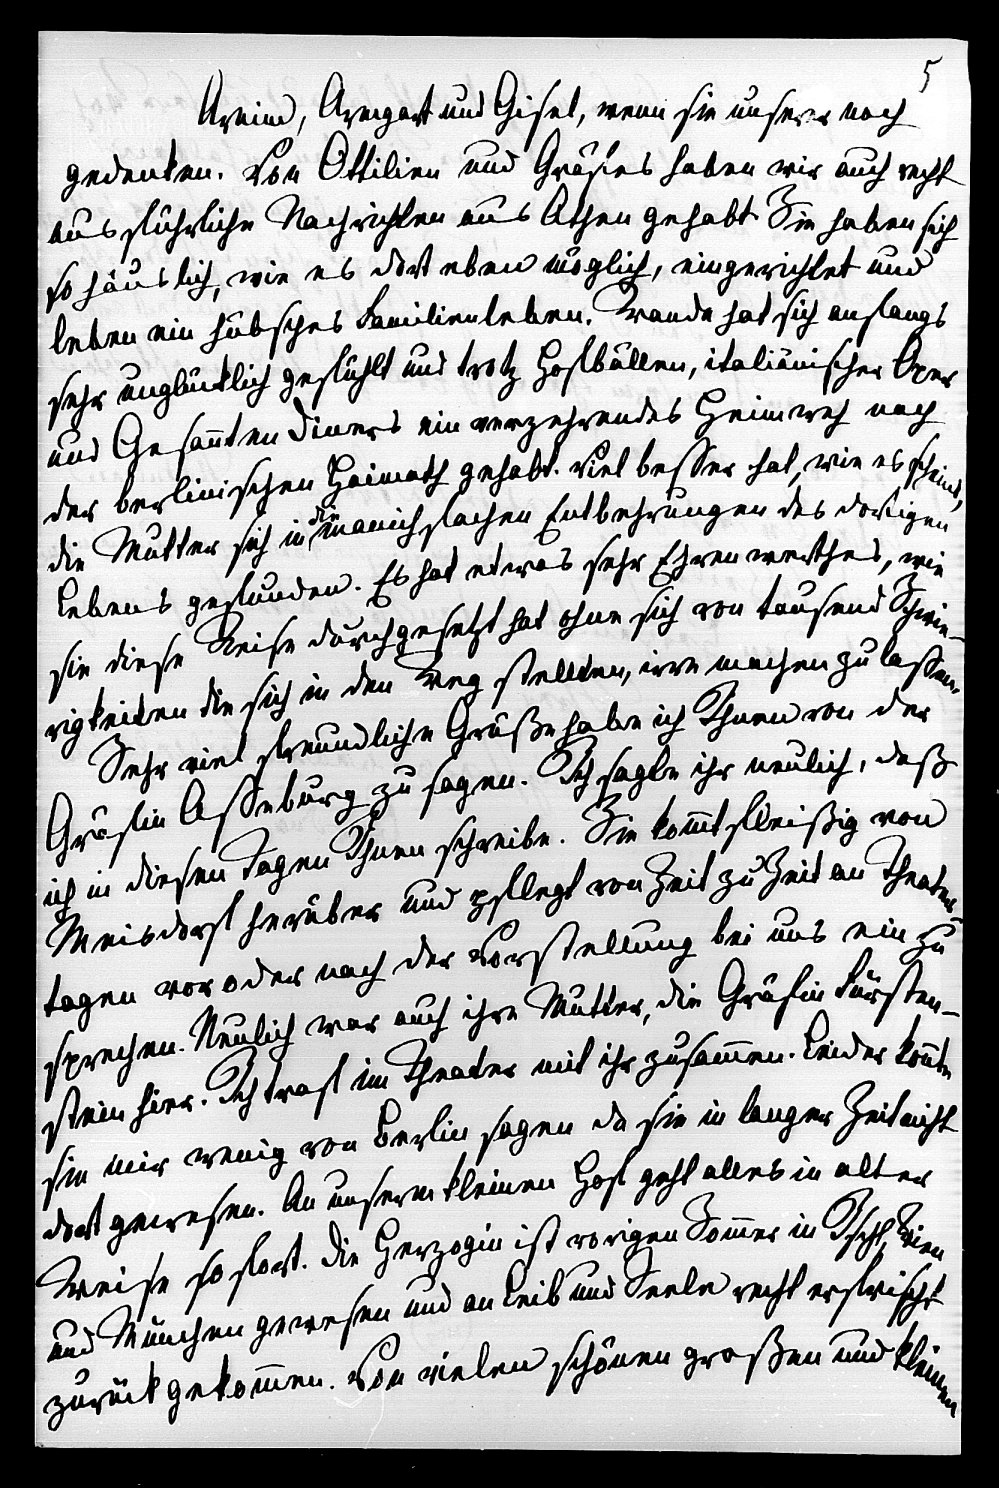 5
Armin, Armgart und Gisel, wenn sie unserer noch
gedenken. Von Ottilien und Gräfies haben wir auch recht
ausführliche Nachrichten aus Athen gehabt Sie haben sich
so häuslich, wie es dort eben möglich, eingerichtet und
leben ein hübsches Familienleben. Wanda hat sich anfangs
sehr unglücklich gefühlt und trotz Hofbällen, italiänischer Oper
und Gesandten Diners ein verzehrendes Heimweh nach
der berlinischen Heimath gehabt. Viel besser hat, wie es scheint,
die Mutter sich in die manichfachen Entbehrungen des dortigen
Lebens gefunden. Es hat etwas sehr Ehrenwerthes, wie
sie diese Reise durchgesetzt hat ohne sich von tausend Schwie-
rigkeiten die sich in den Weg stellten, irre machen zu lassen.
Sehr viel freundliche Grüße habe ich Ihnen von der
Gräfin Asseburg zu sagen. Ich sagte ihr neulich, daß
ich in diesen Tagen Ihnen schreibe. Sie kom̄t fleißig von
Meisdorf herüber und pflegt von Zeit zu Zeit an Theater-
tagen vor oder nach der Vorstellung bei uns ein zu
sprechen. Neulich war auch ihre Mutter, die Gräfin Fürsten-
stein hier. Ich traf im Theater mit ihr zusam̄en. Leider kon̄te
sie mir wenig von Berlin sagen da sie in langer Zeit nicht
dort gewesen. An unserm kleinen Hof geht alles in alter
Weise so fort. Die Herzogin ist vorigen Som̄er in Ischl, Wien
und München gewesen und an Leib und Seele recht erfrischt
zurück gekom̄en. Von vielen schönen großen und kleinen